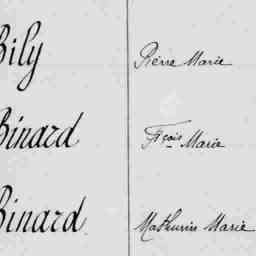 Bily Pierre Marie
Binard Fçois Marie
Binard Mathurin Marie